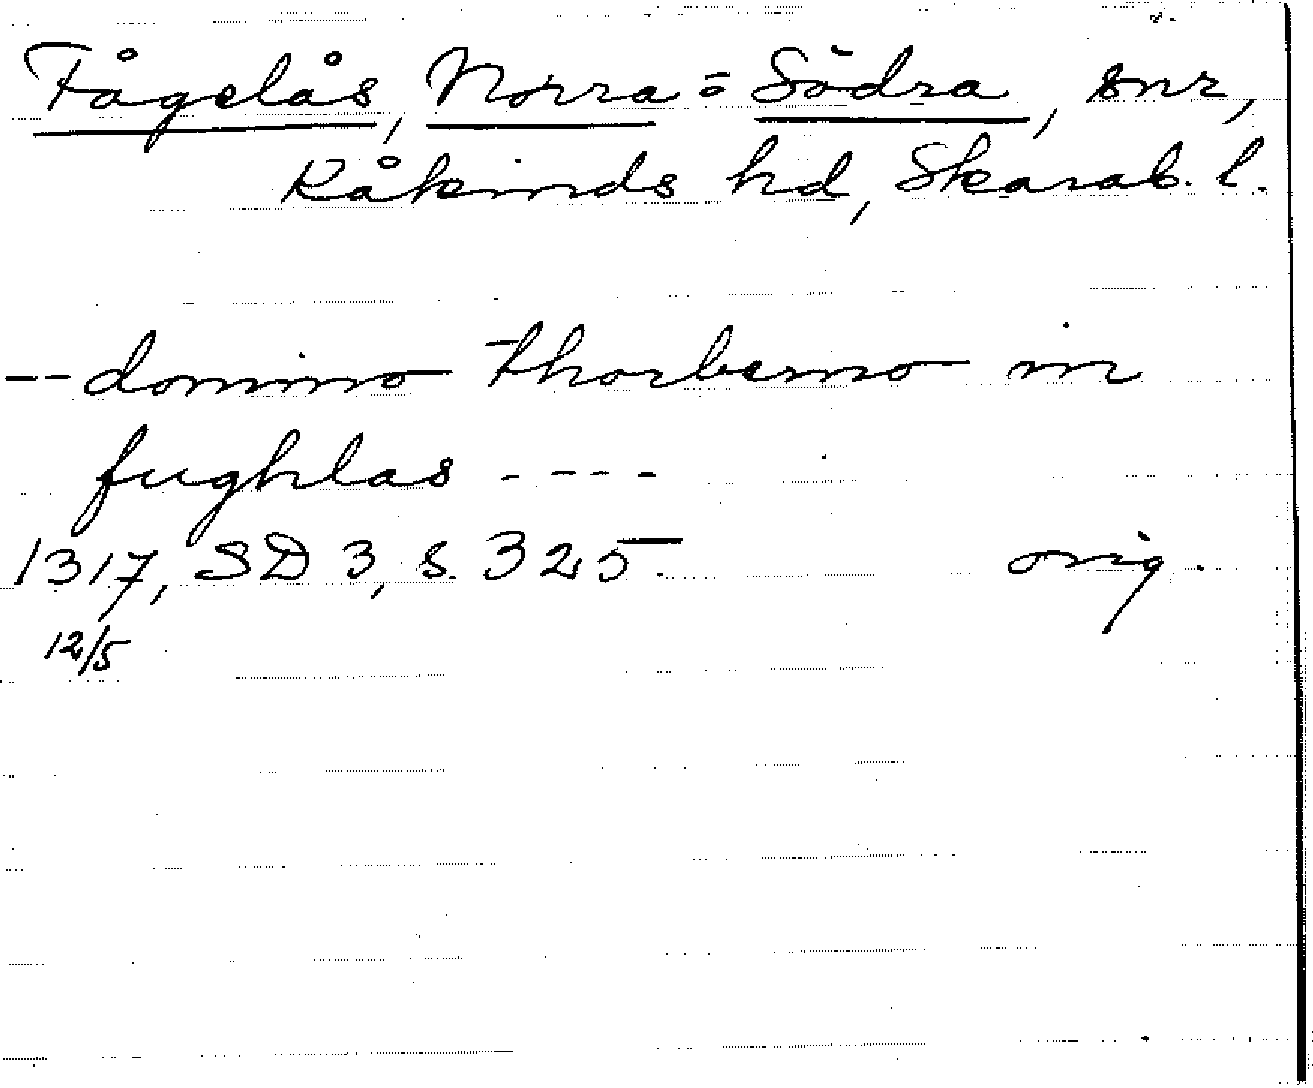 Fågelås, Norra o Södra, snr,
Kåkinds hd, Skarab. l.
-- domino thorberno in
fughlas - - - -
1317, SD 3, s. 325. orig.
12/5